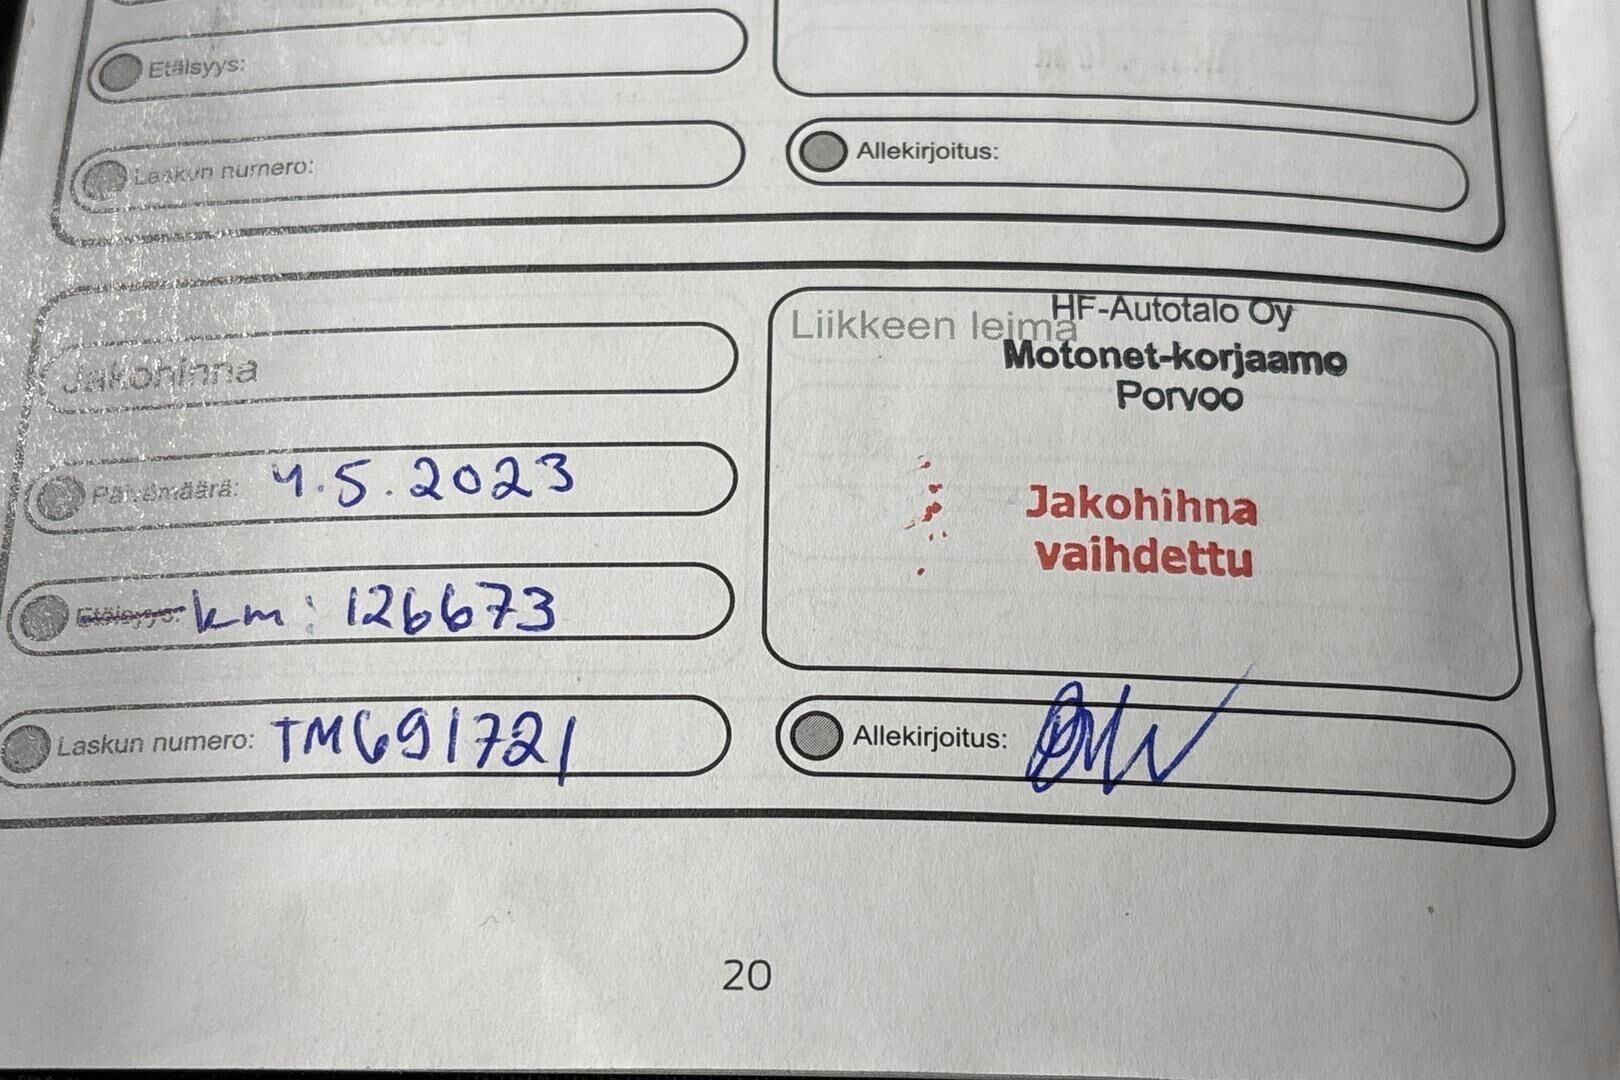 Etäisyys:
Laskun numero:
Allekirjoitus:
Jakohinna
Päivämäärä: 4.5.2023
Etäisyys: km: 126673
Laskun numero: TM691721
Liikkeen leima
HF-Autotalo Oy
Motonet-korjaamo
Porvoo
Jakohihna
vaihdettu
Allekirjoitus:
20